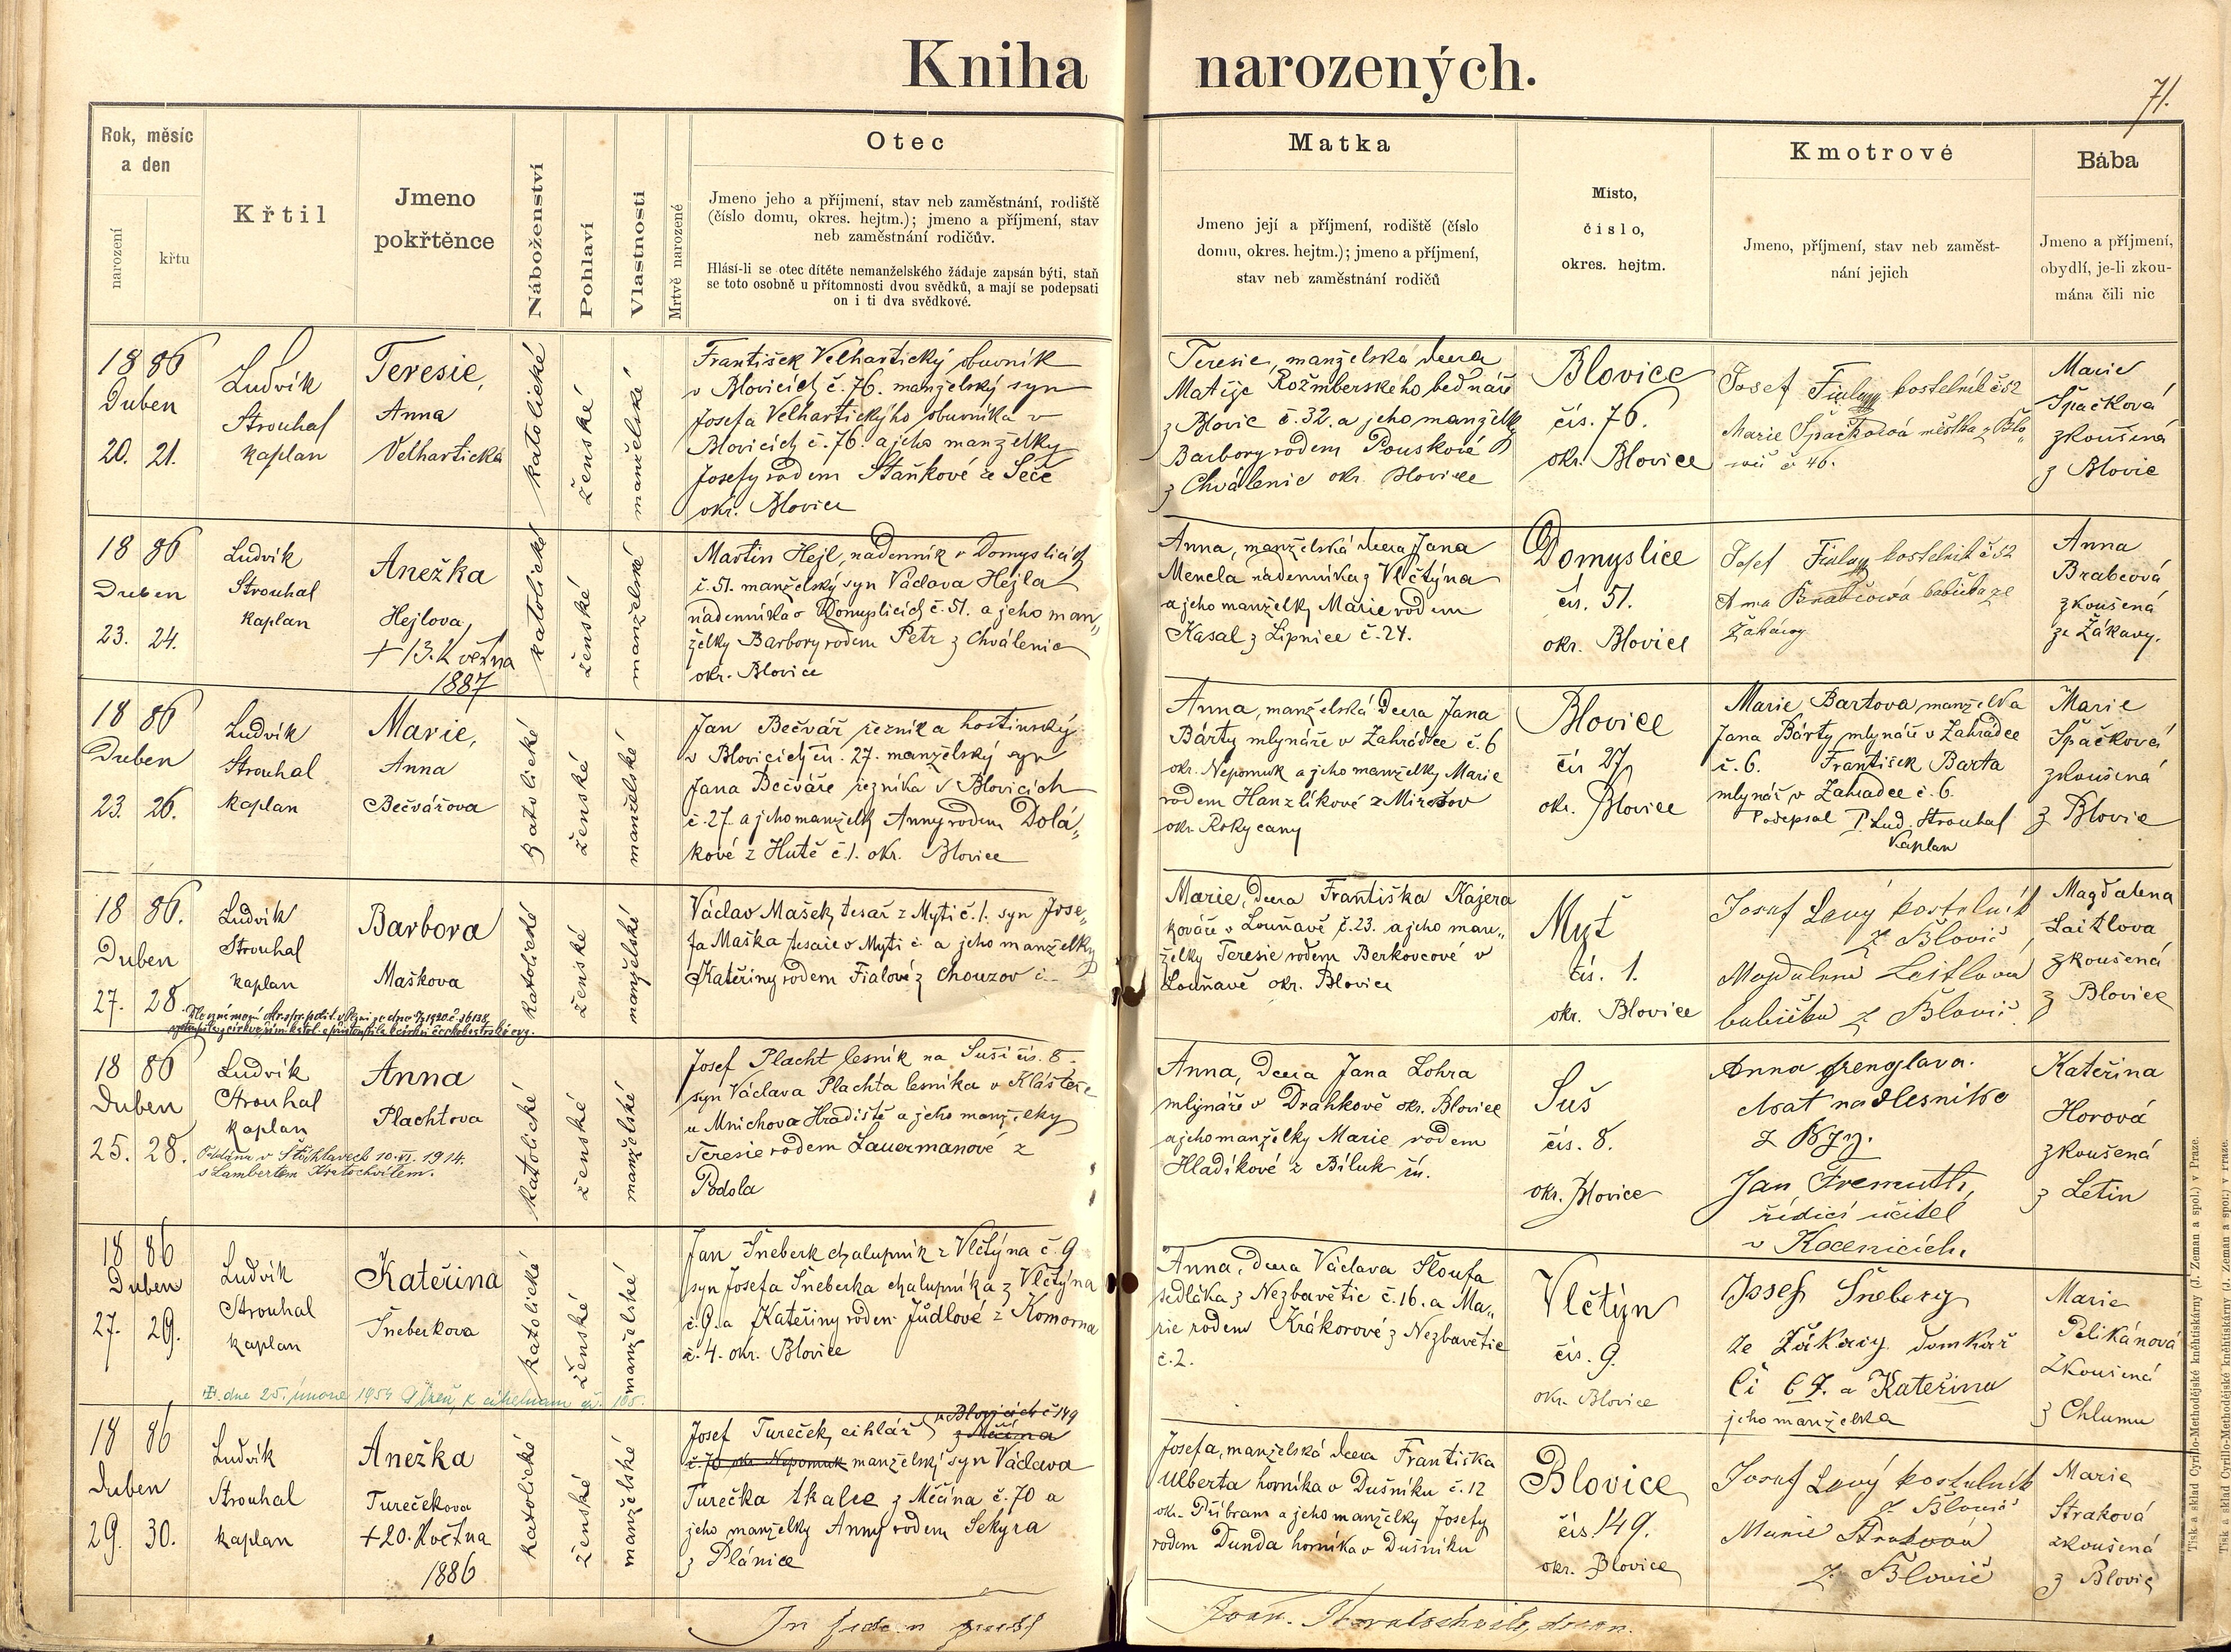 Kniha narozených.
71.
Rok, měsíc
a den
narození
křtu
Křtil
Jmeno
pokřtěnce
Náboženství
Pohlaví
Vlastnosti
Mrtvě narozené
Otec
Jmeno jeho a příjmení, stav neb zaměstnání, rodiště
(číslo domu, okres. hejtm.); jmeno a příjmení, stav
neb zaměstnání rodičův.
Hlásí-li se otec dítěte nemanželského žádaje zapsán býti, staň
se toto osobně u přítomnosti dvou svědků, a mají se podepsati
on i ti dva svědkové.
Matka
Jmeno její a příjmení, rodiště (číslo
domu, okres. hejtm.); jmeno a příjmení,
stav neb zaměstnání rodičů
Místo,
číslo,
okres. hejtm.
Kmotrové
Jmeno, příjmení, stav neb zaměst-
nání jejich
Bába
Jmeno a příjmení,
obydlí, je-li zkou-
mána čili nic
1886
Duben
20. 21.
Ludvík
Strouhal
kaplan
Teresie,
Anna
Velhartická
katolické
ženské
manželské
František Velhartický obuvník
v Blovicích č. 76. manželský syn
Josefa Velhartickýho obuvníka v
Blovicích č. 76 a jeho manželky
Josefy rodem Staňkové ze Seče
okr. Blovice
Teresie, manželská dcera
Matěje Rožmberského bednáře
z Blovic č. 32. a jeho manželky
Barbory rodem Pouskové
z Chválenic okr. Blovice
Blovice
čís. 76.
okr. Blovice
Josef kostelník č 52
Marie Špačková městka z Blo„
vic č 46.
Marie
Špačková
zkoušená
z Blovic
1886
Duben
23. 24.
Ludvík
Strouhal
kaplan
Anežka
Hejlova,
+ 13. května
1887
katolické
ženské
manželské
Martin Hejl, nádenník v Domyslicích
č. 51. manželský syn Václava Hejla
nádenníka v Domyslicích č. 51. a jeho man„
želky Barbory rodem Petr z Chválenic
okr. Blovice
Anna, manželská dcera Jana
Mencla nádenníka z Vlčtýna
a jeho manželky Marie rodem
Kasal z Lipnice č. 24.
Domyslice
čís. 51.
okr. Blovice
Josef kostelník č 52
Anna Brabcová babička ze
Žákavy
Anna
Brabcová
zkoušená
ze Žákavy.
1886
Duben
23. 26.
Ludvík
Strouhal
kaplan
Marie,
Anna
Bečvářova
katolické
ženské
manželské
Jan Bečvář řezník a hostinský
v Blovicích čís. 27. manželský syn
Jana Bečváře řezníka v Blovicích
č. 27 a jeho manželky Anny rodem Dolá„
kové z Hutě č. 1. okr. Blovice
Anna, manželská dcera Jana
Bárty mlynáře v Zahrádce č. 6
okr. Nepomuk a jeho manželky Marie
rodem Hanzlíkové z Mirošov
okr. Rokycany
Blovice
čís 27.
okr. Blovice
Marie Bartova, manželka
Jana Bárty mlynáře v Zahrádce
č. 6. František Barta
mlynář v Zahradce č. 6.
Podepsal P. Lud. Strouhal
Kaplan
Marie
Špačková
zkoušená
z Blovic
1886.
Duben
27. 28.
Ludvík
Strouhal
kaplan
Barbora
Maškova
katolické
ženské
manželské
Václav Mašek, tesař z Mytí č. 1. syn Jose„
fa Maška tesaře v Myti č. a jeho manželky
Kateřiny rodem Fialové z Chouzov č. –
Marie, dcera Františka Kajera
kováře v Louňavě č. 23. a jeho man„
želky Teresie rodem Berkovcové v
Louňavě okr. Blovice
Myť
čís. 1.
okr. Blovice
Josef Lavý kostelník
z Blovic
Magdalena Laitlová
babička z Blovic
Magdalena
Laitlova
zkoušená
z Blovice
1886
Duben
25. 28.
Ludvík
Strouhal
kaplan
Anna
Plachtova
Oddána v Štáhlavech 10. VI. 1914.
s Lambertem Kratochvílem.
katolické
ženské
manželské
Josef Placht lesník na Suši čís. 8.
syn Václava Plachta lesníka v Klášteře
u Mnichova Hradiště a jeho manželky
Teresie rodem Lauermanové z
Podola
Anna, dcera Jana Lohra
mlynáře v Drahkově okr. Blovice
a jeho manželky Marie rodem
Hladíkové z Bíluk čís.
Suš
čís. 8.
okr. Blovice
Anna
nadlesniko
Jan Fremuth,
řídící učitel
v Kocenicích.
Kateřina
Horová
zkoušená
z Letin
1886
Duben
27. 29.
Ludvík
Strouhal
kaplan
Kateřina
Šneberkova
dne 25. února 1954 Plzeň, K cihelnám čp. 105.
katolické
ženské
manželské
Jan Šneberk chalupník z Vlčtýna č. 9
syn Josefa Šneberka chalupníka z Vlčtýna
č. 9. a Kateřiny rodem Jůdlové z Komorna
č. 4. okr. Blovice
Anna, dcera Václava Sloufa
sedláka z Nezbavětic č. 16. a Ma„
rie rodem Krákorové z Nezbavětic
č. 2.
Vlčtýn
čís. 9.
okr. Blovice
Josef Šneberg
ze Žákavy domkař
a Kateřina
jeho manželka
Marie
Pelikánová
zkoušená
z Chlumu
1886
Duben
29. 30.
Ludvík
Strouhal
kaplan
Anežka
Turečkova
+ 20. Května
1886
katolické
ženské
manželské
v Blovicích č 149
Josef Tureček, cihlář z Měčína
č. 70 okr. Nepomuk manželský syn Václava
Turečka tkalce z Měčína č. 70 a
jeho manželky Anny rodem Sekyra
z Plánice
Josefa, manželská dcera Františka
Ulberta horníka v Dušníku č. 12
okr. Příbram a jeho manželky Josefy
rodem Dunda horníka v Dušníku
Blovice
čís. 149.
okr. Blovice
Josef Lavý kostelník
z Blovic
Marie Straková
z Blovic
Marie
Straková
zkoušená
z Blovic
Tisk a sklad Cyrillo-Methodějské kněhtiskárny (J. Zeman a spol.) v Praze.
Tisk a sklad Cyrillo-Methodějské kněhtiskárny (J. Zeman a spol.) v Praze.